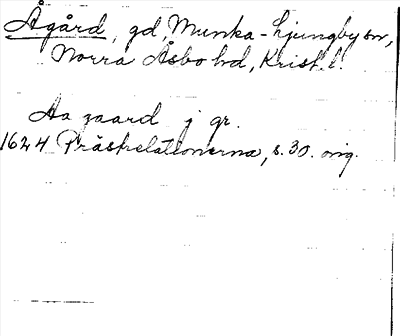 Ågård, gd, Munka-Ljungby sn,
Norra Åsbo hd, Krist. l.
Aagaard j gr.
1624 Prästrelationerna, s. 30. orig.